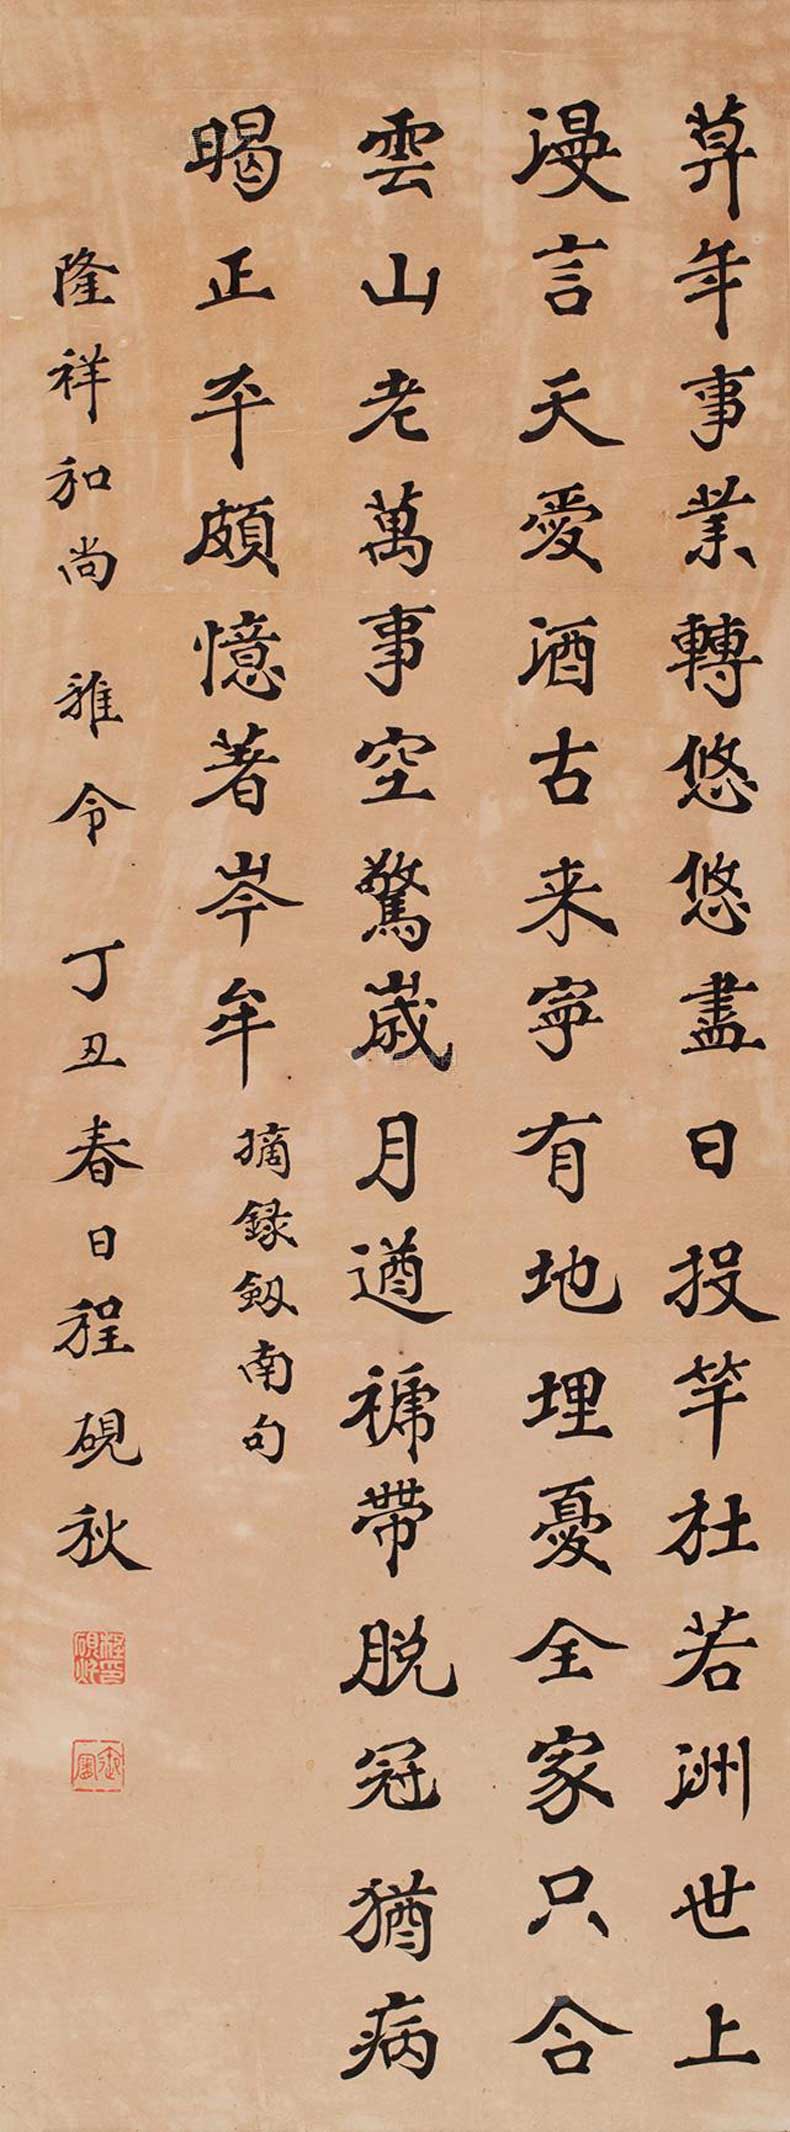 莫年事業轉悠悠盡日投竿杜若洲世上
漫言天愛酒古来寧有地埋憂全家只合
雲山老萬事空驚歲月遒褫帶脱冠猶病
暍正平頗憶著岑牟 摘録劔南句
隆祥和尚 雅令 丁丑春日程硯秋
程硯秋印
御霜